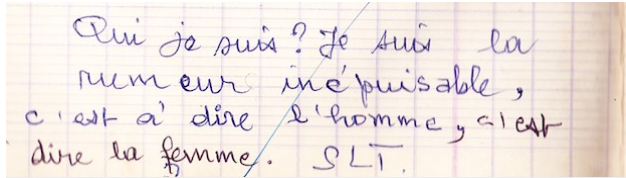 Qui je suis? Je suis la
rumeur inépuisable,
c'est à dire l'homme, c'est
dire la femme. SLT.